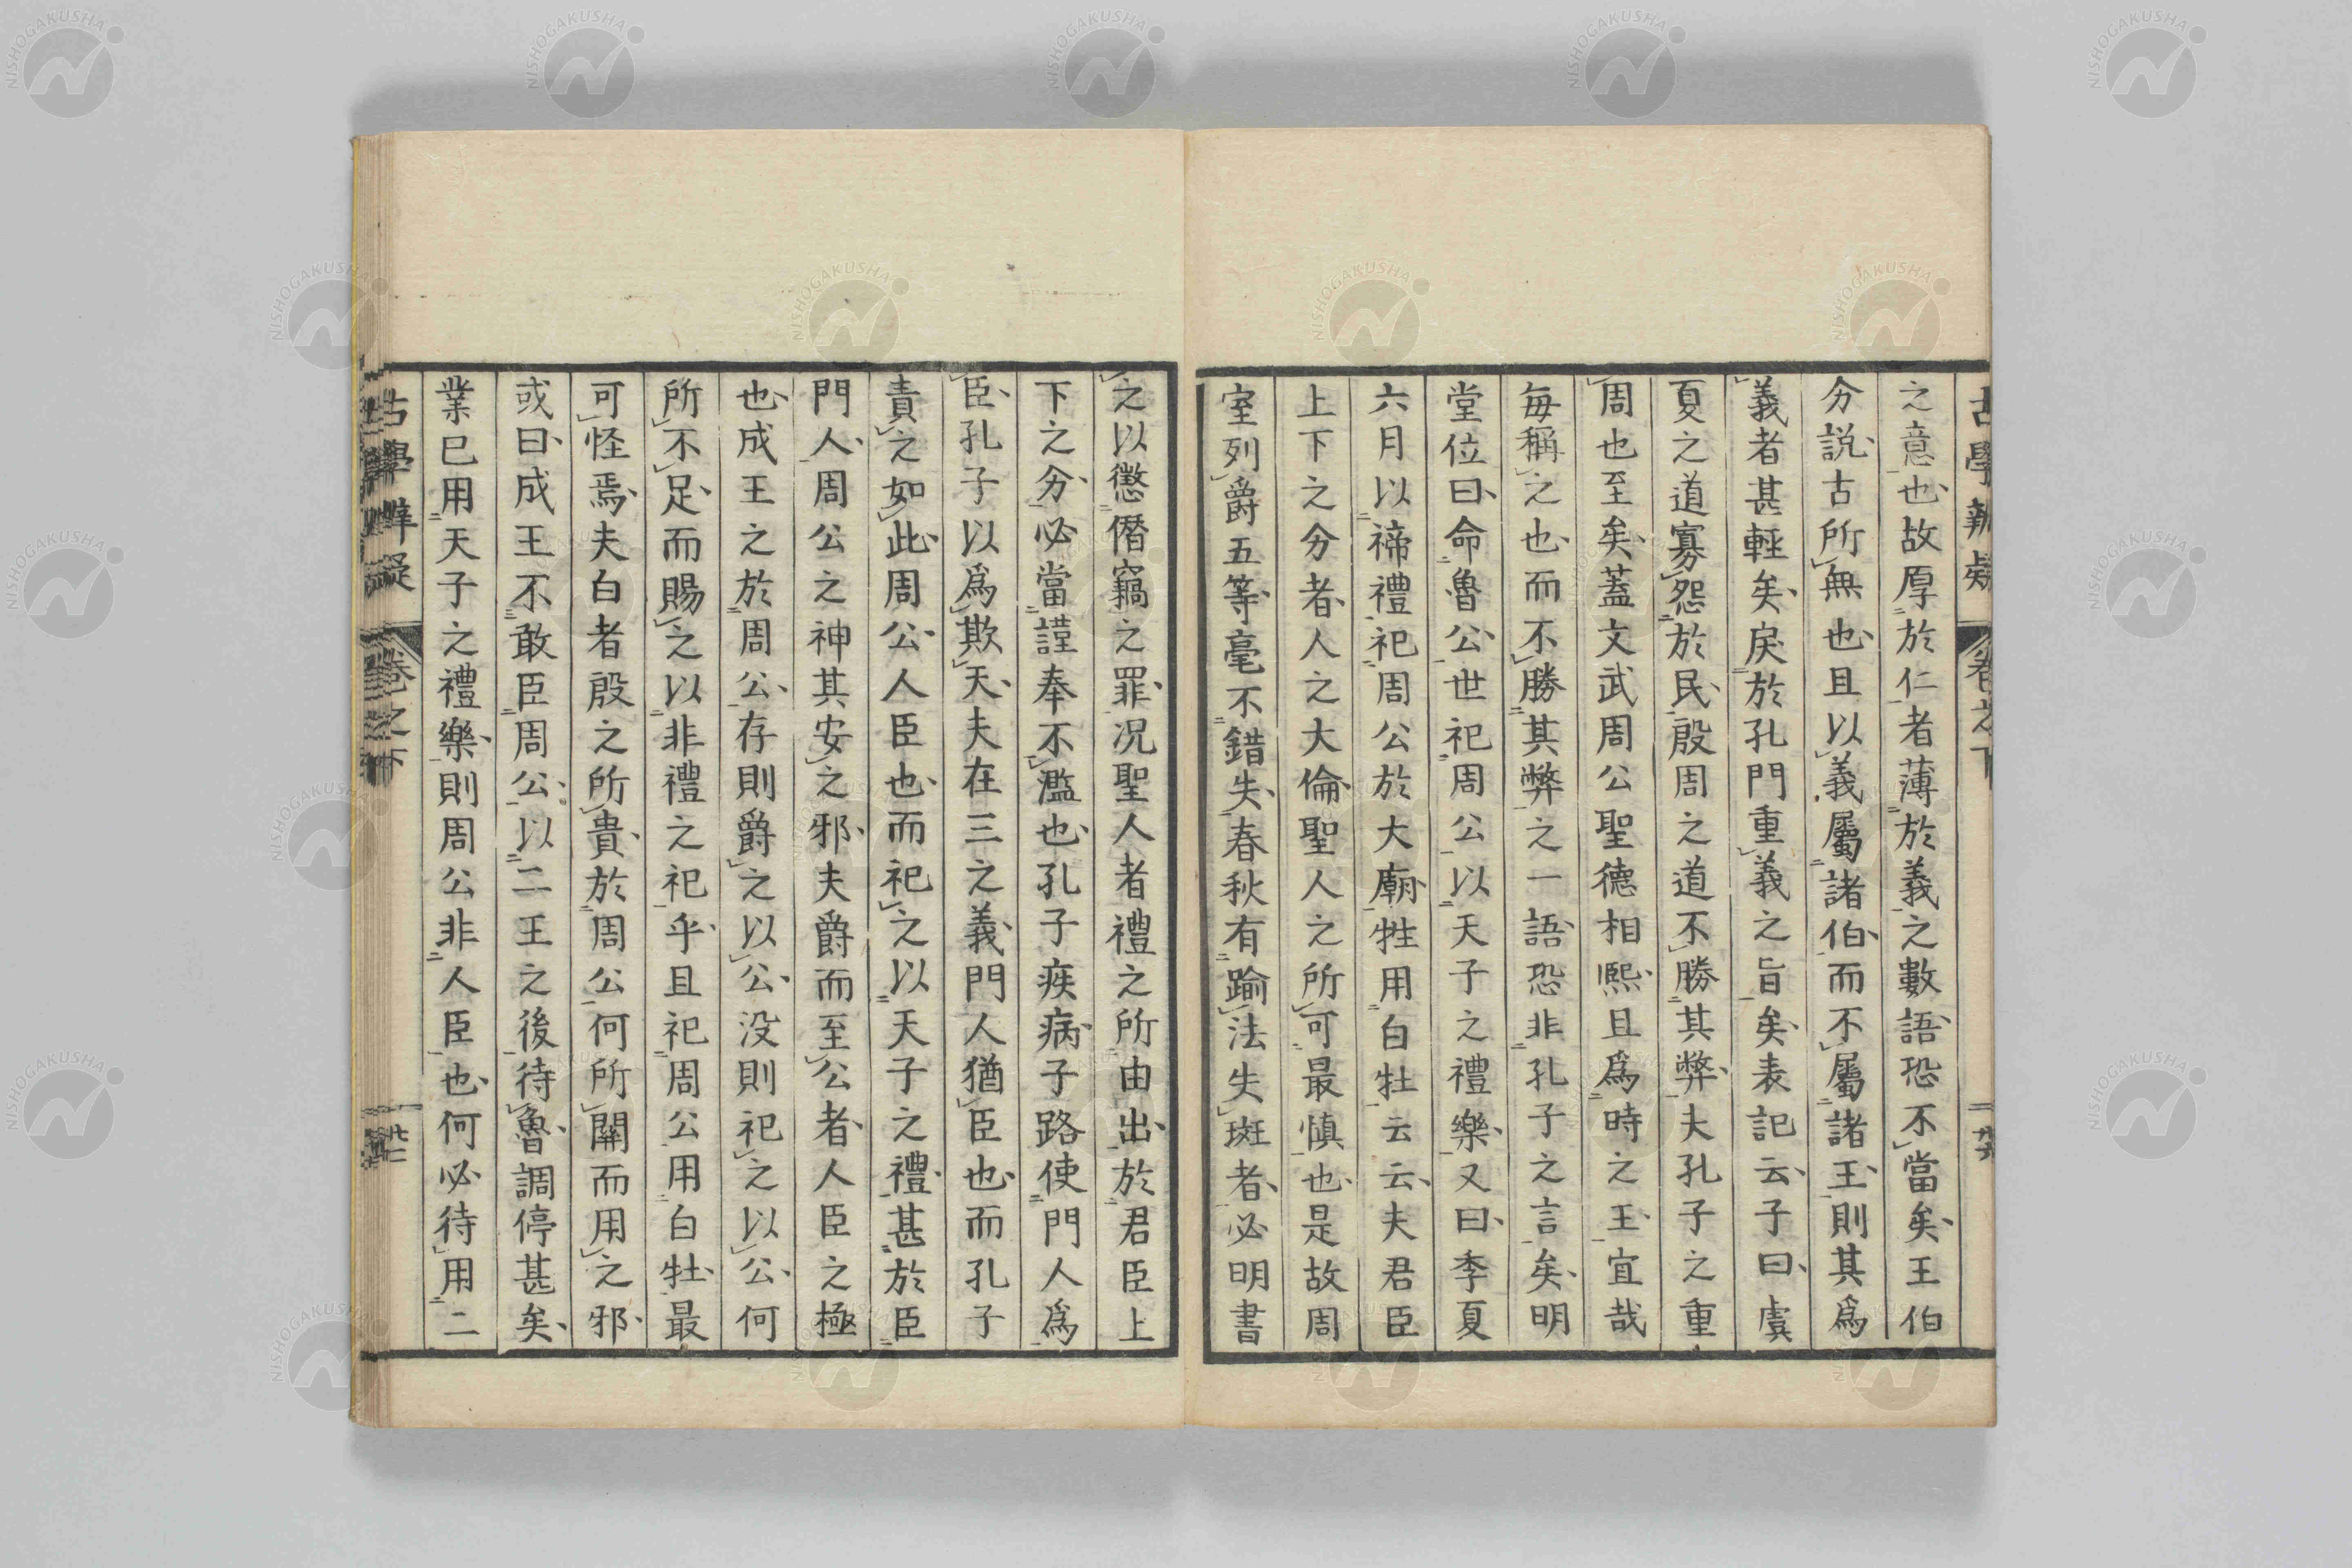 古學辨疑 卷之下 廿六
之意也故厚於仁者薄於義之數語恐不當矣王伯
分說古所無也且以義屬諸伯而不屬諸王則其爲
義者甚輕矣戾於孔門重義之旨矣表記云子曰虞
夏之道寡怨於民殷周之道不勝其弊夫孔子之重
周也至矣蓋文武周公聖德相熙且爲時之王宜哉
每稱之也而不勝其弊之一語恐非孔子之言矣明
堂位曰命魯公世祀周公以天子之禮樂又曰季夏
六月以禘禮祀周公於大廟牲用白牡云云夫君臣
上下之分者人之大倫聖人之所可最慎也是故周
室列爵五等毫不錯失春秋有踰法失斑者必明書
之以懲僭竊之罪况聖人者禮之所由出於君臣上
下之分必當謹奉不濫也孔子疾病子路使門人爲
臣孔子以爲欺天夫在三之義門人猶臣也而孔子
責之如此周公人臣也而祀之以天子之禮甚於臣
門人周公之神其安之邪夫爵而至公者人臣之極
也成王之於周公存則爵之以公没則祀之以公何
所不足而賜之以非禮之祀乎且祀周公用白牡最
可怪焉夫白者殷之所貴於周公何所關而用之邪
或曰成王不敢臣周公以二王之後待魯調停甚矣
業已用天子之禮樂則周公非人臣也何必待用二
古學辨疑 卷之下 廿七
NISHOGAKUSHA